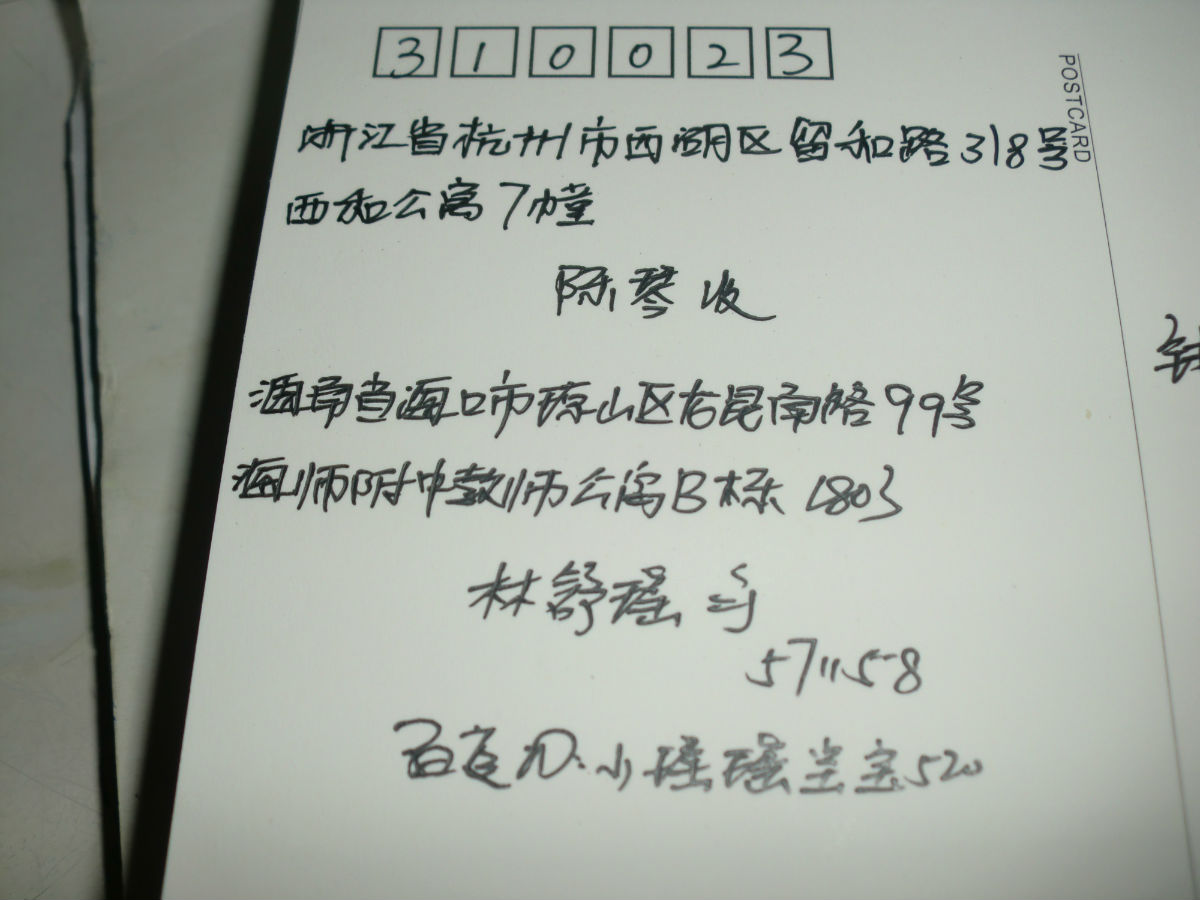 310023
POSTCARD
浙江省杭州市西湖区留和路318号
西和公寓7幢
陈琴波
海南省海口市琼山区石昆南路99号
海师附中教师公寓B栋1803
林舒瑶寄
571158
百度ID:小瑶瑶宝宝520